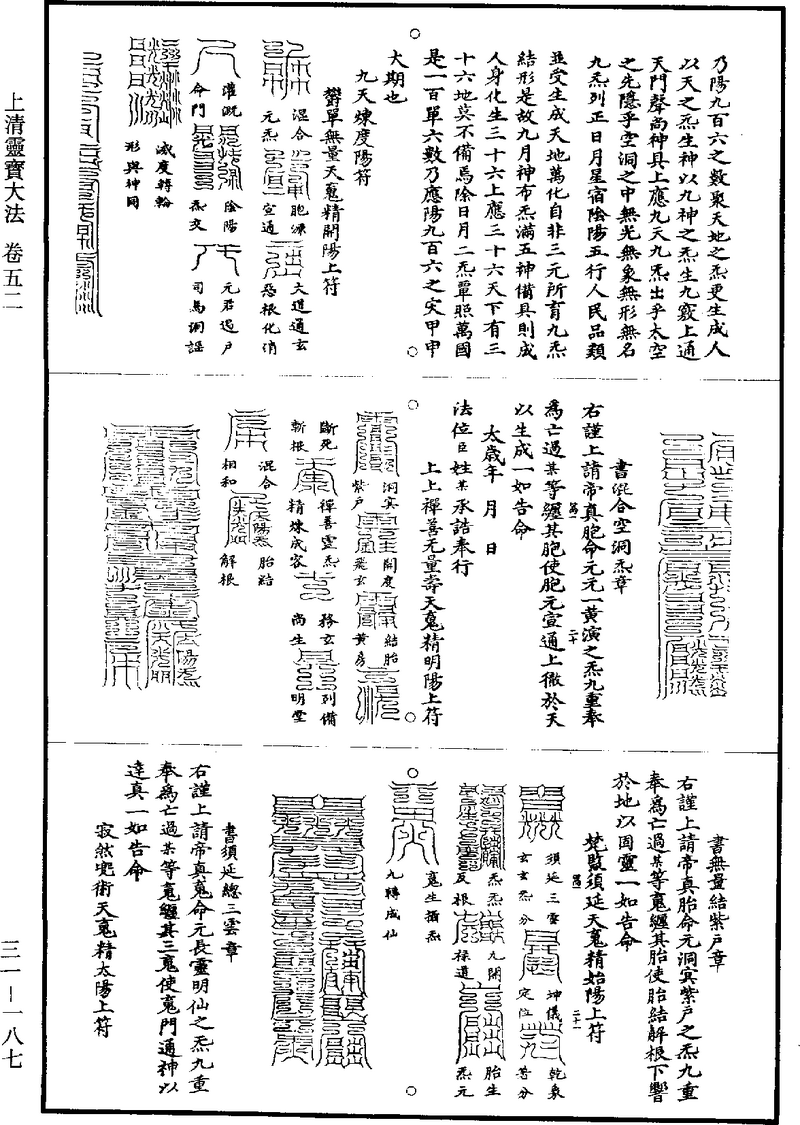 上清靈寶大法 卷五二
三一—一八七
乃陽九百六之數聚天地之炁更生成人
以天之炁生神以九神之炁生九竅上通
天門聲尚神具上應九天九炁出乎太空
之先隱乎空洞之中無光無象無形無名
九炁列正日月星宿陰陽五行人民品類
並受生成天地萬化自非三元所育九炁
結形是故九月神布炁滿五神備具則成
人身化生三十六上應三十六天下有三
十六地莫不備焉除日月二炁單照萬國
是一百單六數乃應陽九百六之災甲申
大期也
九天煉度陽符
欝單無量天䰟精開陽上符
混合
胞源
文道通玄
元炁
宣通
惡根化消
灌溉
陰陽
元君遏尸
命門
炁交
司馬洞謡
滅度轉輪
形與神同
書混合空洞炁章
右謹上請帝真胞命元元一黃演之炁九重奉
為亡過某等纏其胞使胞元宣通上徹於天
以生成一如告命
太歲年 月 日
法位臣姓某承誥奉行
上上禪善无量壽天䰟精明陽上符
洞冥
開度
結胎
紫戶
飛玄
黃房
斷死
禪善靈炁
務玄
列備
斬根
精煉成容
尚生
明堂
混合
太陽炁
胎結
相和
解根
書無量結紫戶章
右謹上請帝真胎命元洞冥紫戶之炁九重
奉為亡過某等䰟纏其胎使胎結解根下響
於地以固靈一如告命
梵監須延天䰟精始陽上符
須延三靈
坤儀
乾象
玄玄炁分
定位
等分
炁炁
九開
胎生
反根
祿道
炁元
䰟生播炁
九轉成仙
書須延總三雲章
右謹上請帝真䰟命元長靈明仙之炁九重
奉為亡過某等䰟纏其三䰟使䰟門通神以
達真一如告命
寂然兜術天䰟精太陽上符